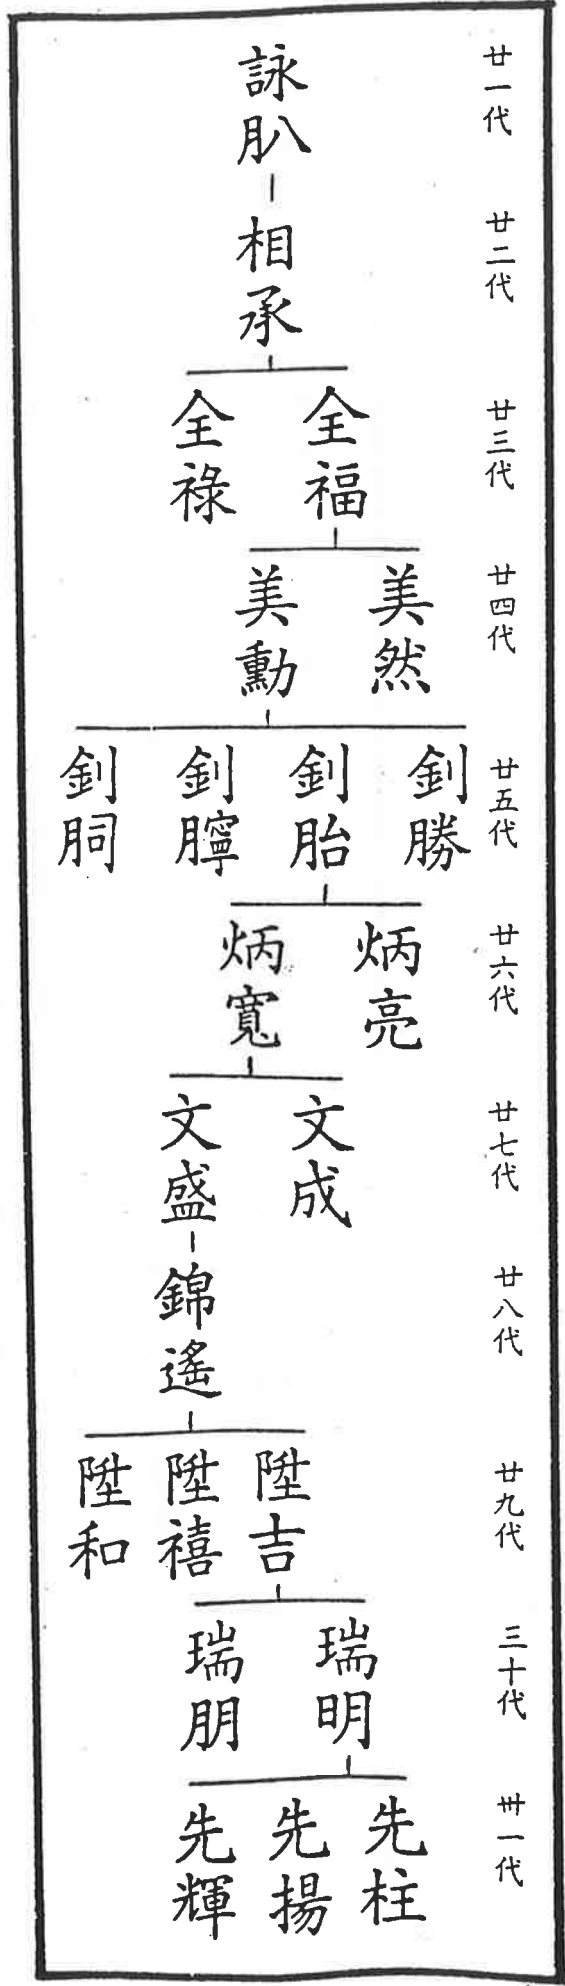 廿一代
詠
廿二代
相承
廿三代
全福
全祿
廿四代
美然
美勳
廿五代
釗勝
釗胎
釗
釗
廿六代
炳亮
炳寬
廿七代
文成
文盛
廿八代
錦遙
廿九代
陞吉
陞禧
陞和
三十代
瑞明
瑞朋
卅一代
先柱
先揚
先輝